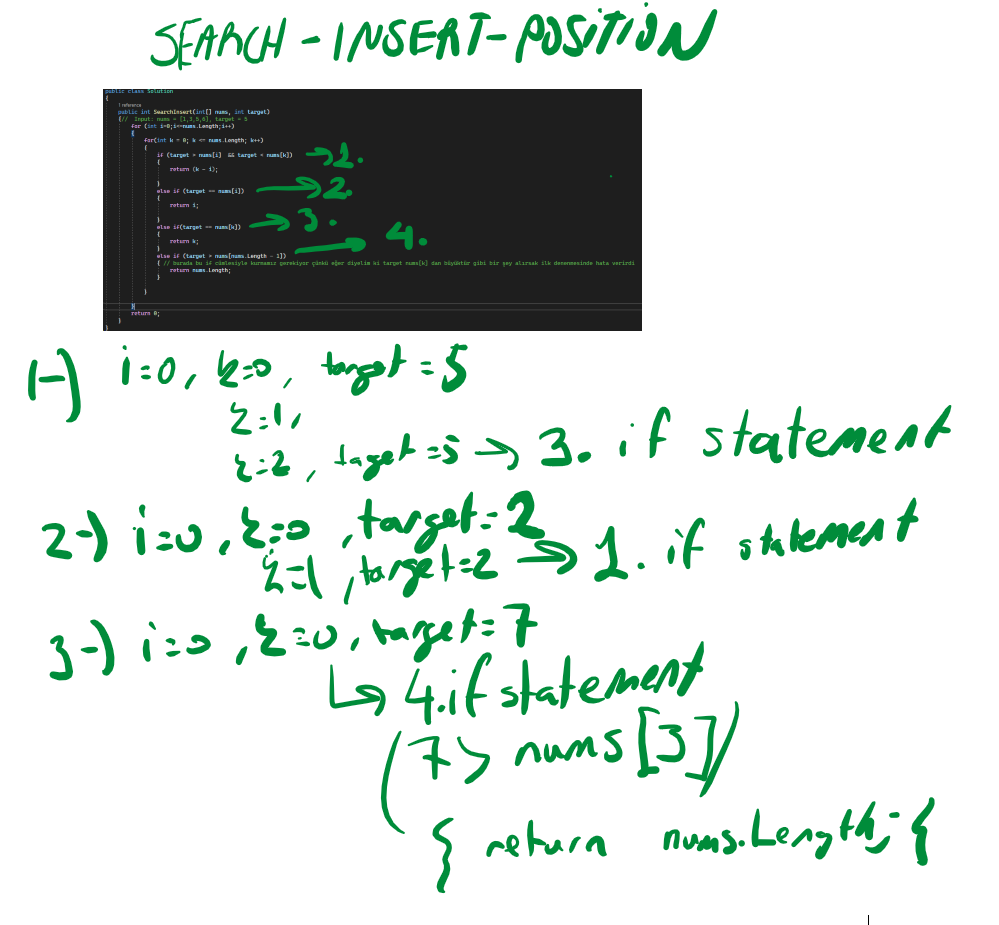 SEARCH-INSERT-POSITION
public class Solution
{
1 reference
public int SearchInsert(int[] nums, int target)
{// Input: nums = [1,3,5,6], target = 5
for (int i=0;i<=nums.Length;i++)
{
for(int k = 0; k <= nums.Length; k++)
{
if (target > nums[i] && target < nums[k]) → 1.
{
return (k - i);
}
else if (target == nums[i]) → 2.
{
return i;
}
else if(target == nums[k]) → 3.
{
return k;
}
else if (target > nums[nums.Length - 1]) → 4.
{ // burada bu if cümlesiyle kurmamız gerekiyor çünkü eğer diyelim ki target nums[k] dan büyüktür gibi bir şey alırsak ilk denenmesinde hata verirdi
return nums.Length;
}
}
}
return 0;
}
}
1-) i=0, k=0, target=5
k=1,
k=2, target=5 → 3. if statement
2-) i=0, k=0, target=2
k=1, target=2 → 1. if statement
3-) i=0, k=0, target=7
↳ 4.if statement
(7> nums[3])
{ return nums.Length; {